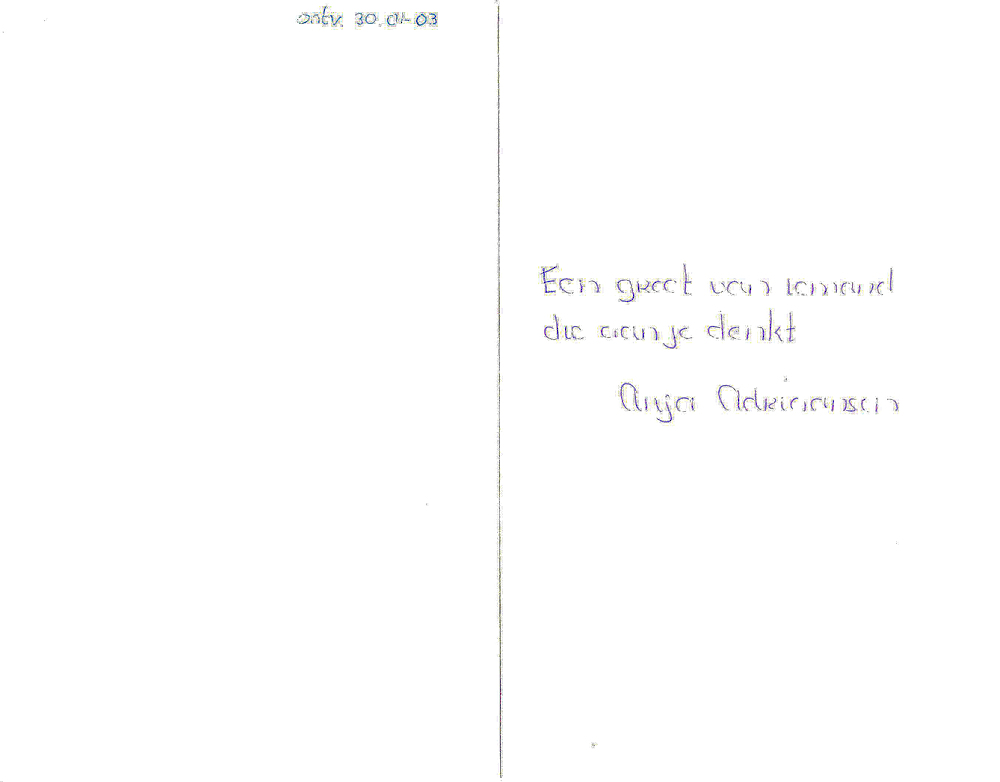 ontv. 30-01-03
Een greet van iemand
die aan je denkt
Anja Adriaansen